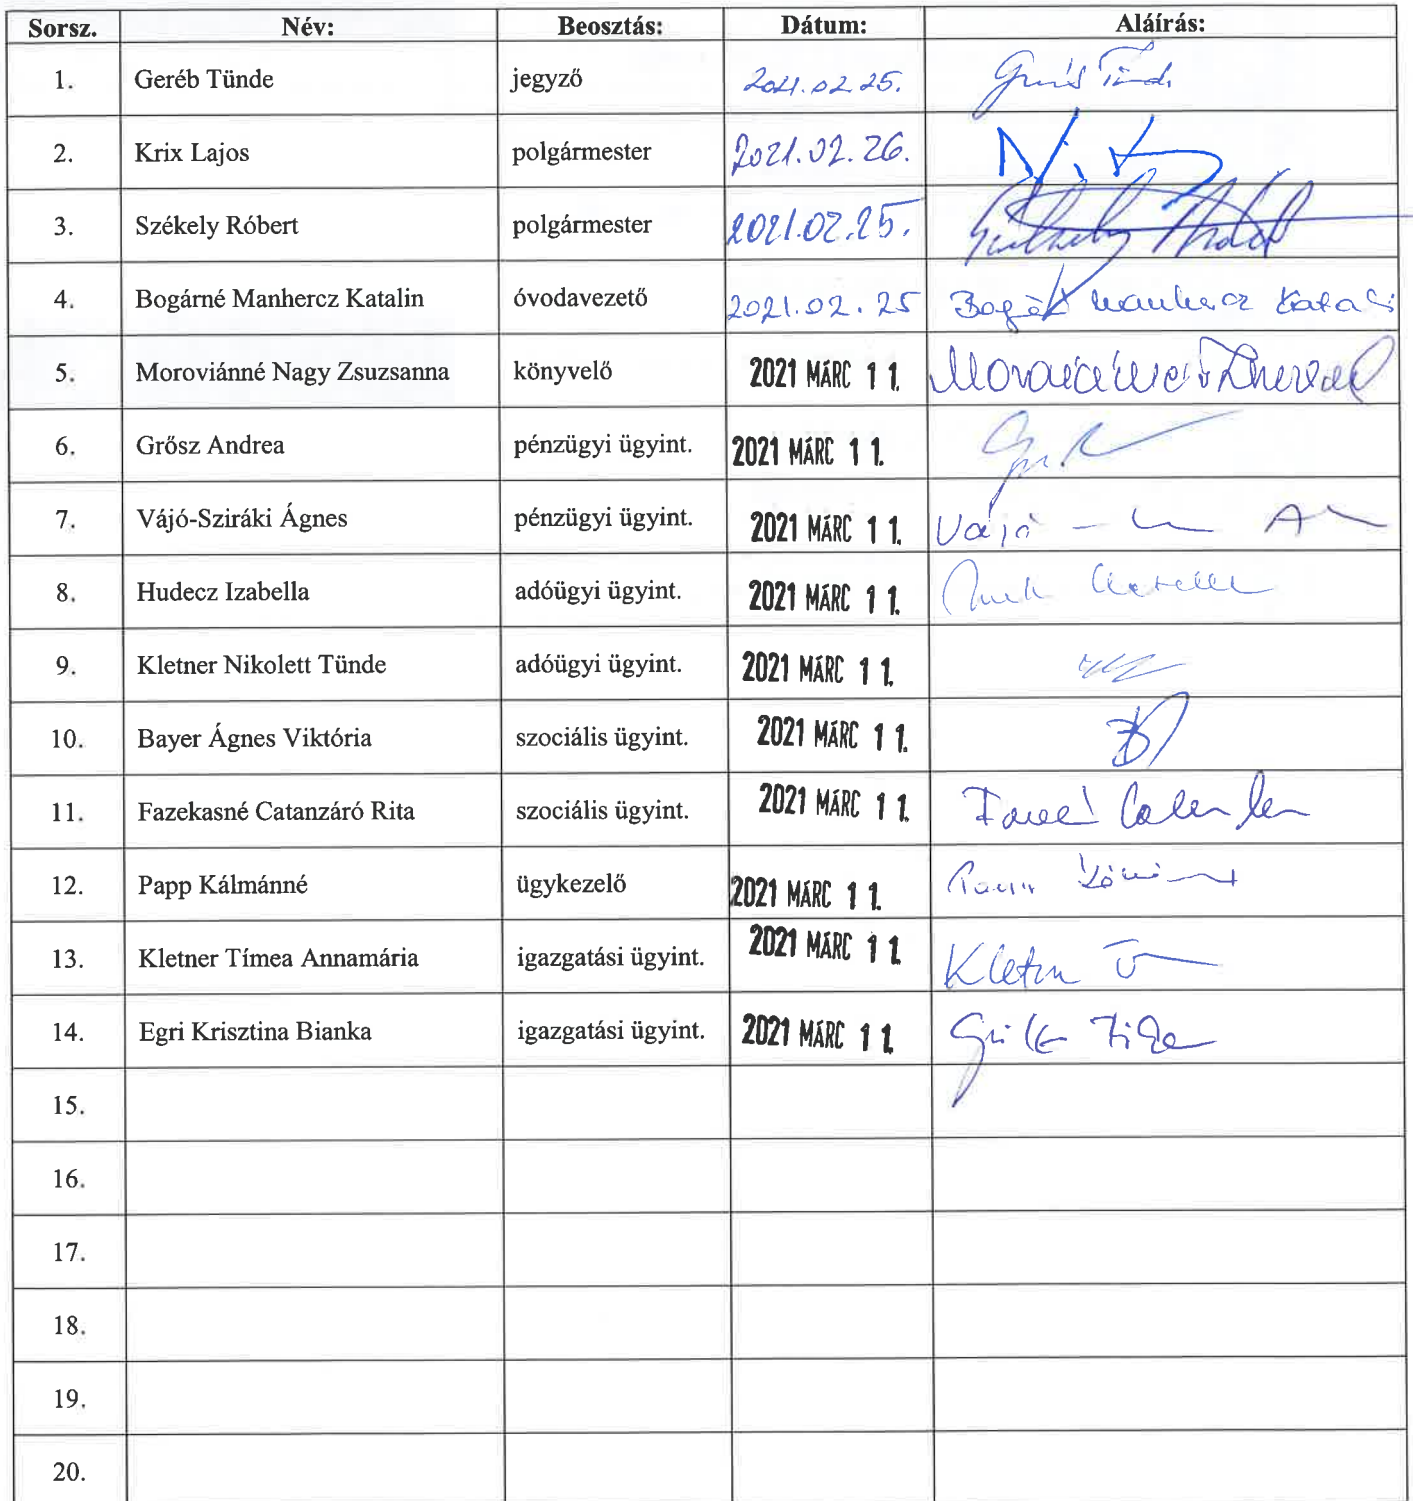 Sorsz. Név: Beosztás: Dátum: Aláírás:
1. Geréb Tünde jegyző 2021.02.25.
2. Krix Lajos polgármester 2021.02.26.
3. Székely Róbert polgármester 2021.02.25.
4. Bogárné Manhercz Katalin óvodavezető 2021.02.25
5. Moroviánné Nagy Zsuzsanna könyvelő 2021 MÁRC 11.
6. Grősz Andrea pénzügyi ügyint. 2021 MÁRC 11.
7. Vájó-Sziráki Ágnes pénzügyi ügyint. 2021 MÁRC 11.
8. Hudecz Izabella adóügyi ügyint. 2021 MÁRC 11.
9. Kletner Nikolett Tünde adóügyi ügyint. 2021 MÁRC 11.
10. Bayer Ágnes Viktória szociális ügyint. 2021 MÁRC 11.
11. Fazekasné Catanzáró Rita szociális ügyint. 2021 MÁRC 11.
12. Papp Kálmánné ügykezelő 2021 MÁRC 11.
13. Kletner Tímea Annamária igazgatási ügyint. 2021 MÁRC 11.
14. Egri Krisztina Bianka igazgatási ügyint. 2021 MÁRC 11.
15.
16.
17.
18.
19.
20.